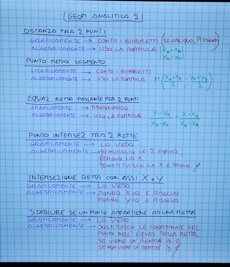 GEOM. ANALITICA 2
DISTANZA TRA 2 PUNTI
GRAFICAMENTE → CONTO I QUADRETTI (SE OBLIQUO, PITAGORA)
ALGEBRICAMENTE → USO LA FORMULA |XA-XB|
|YA-YB|
PUNTO MEDIO SEGMENTO
GRAFICAMENTE → CONTO I QUADRETTI
ALGEBRICAMENTE → USO LA FORMULA M(
EQUAZ. RETTA PASSANTE PER 2 PUNTI
GRAFICAMENTE → DISEGNANDO
ALGEBRICAMENTE → USO LA FORMULA
PUNTO INTERSEZ TRA 2 RETTE
GRAFICAMENTE → LO VEDO
ALGEBRICAMENTE → LE 2 EQUAZ.
TROVO LA X
SOSTITUISCO LA X E TROVO Y
INTERSEZIONE RETTA CON ASSI X e Y
GRAFICAMENTE → LO VEDO
ALGEBRICAMENTE → PONGO X=0 E RISOLVO
PONGO Y=0 E RISOLVO
STABILIRE SE UN PUNTO APPARTIENE AD UNA RETTA
GRAFICAMENTE → LO VEDO
ALGEBRICAMENTE → SOSTITUISCO LE COORDINATE DEL
PUNTO NELL' EQUAZ. DELLA RETTA
SE VIENE UN'IDENTITÀ
SE NON VIENE UN'IDENTITÀ